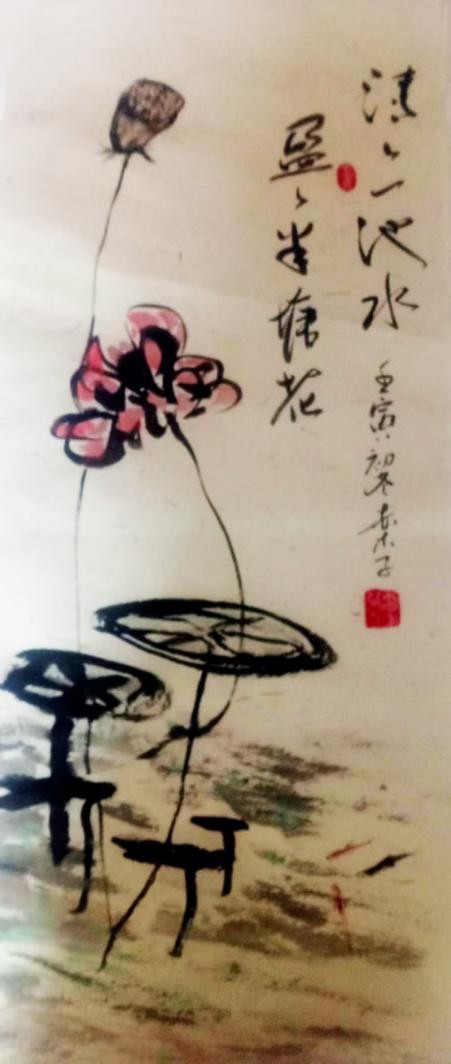 清々一池水
盈々半塘花
壬寅初冬